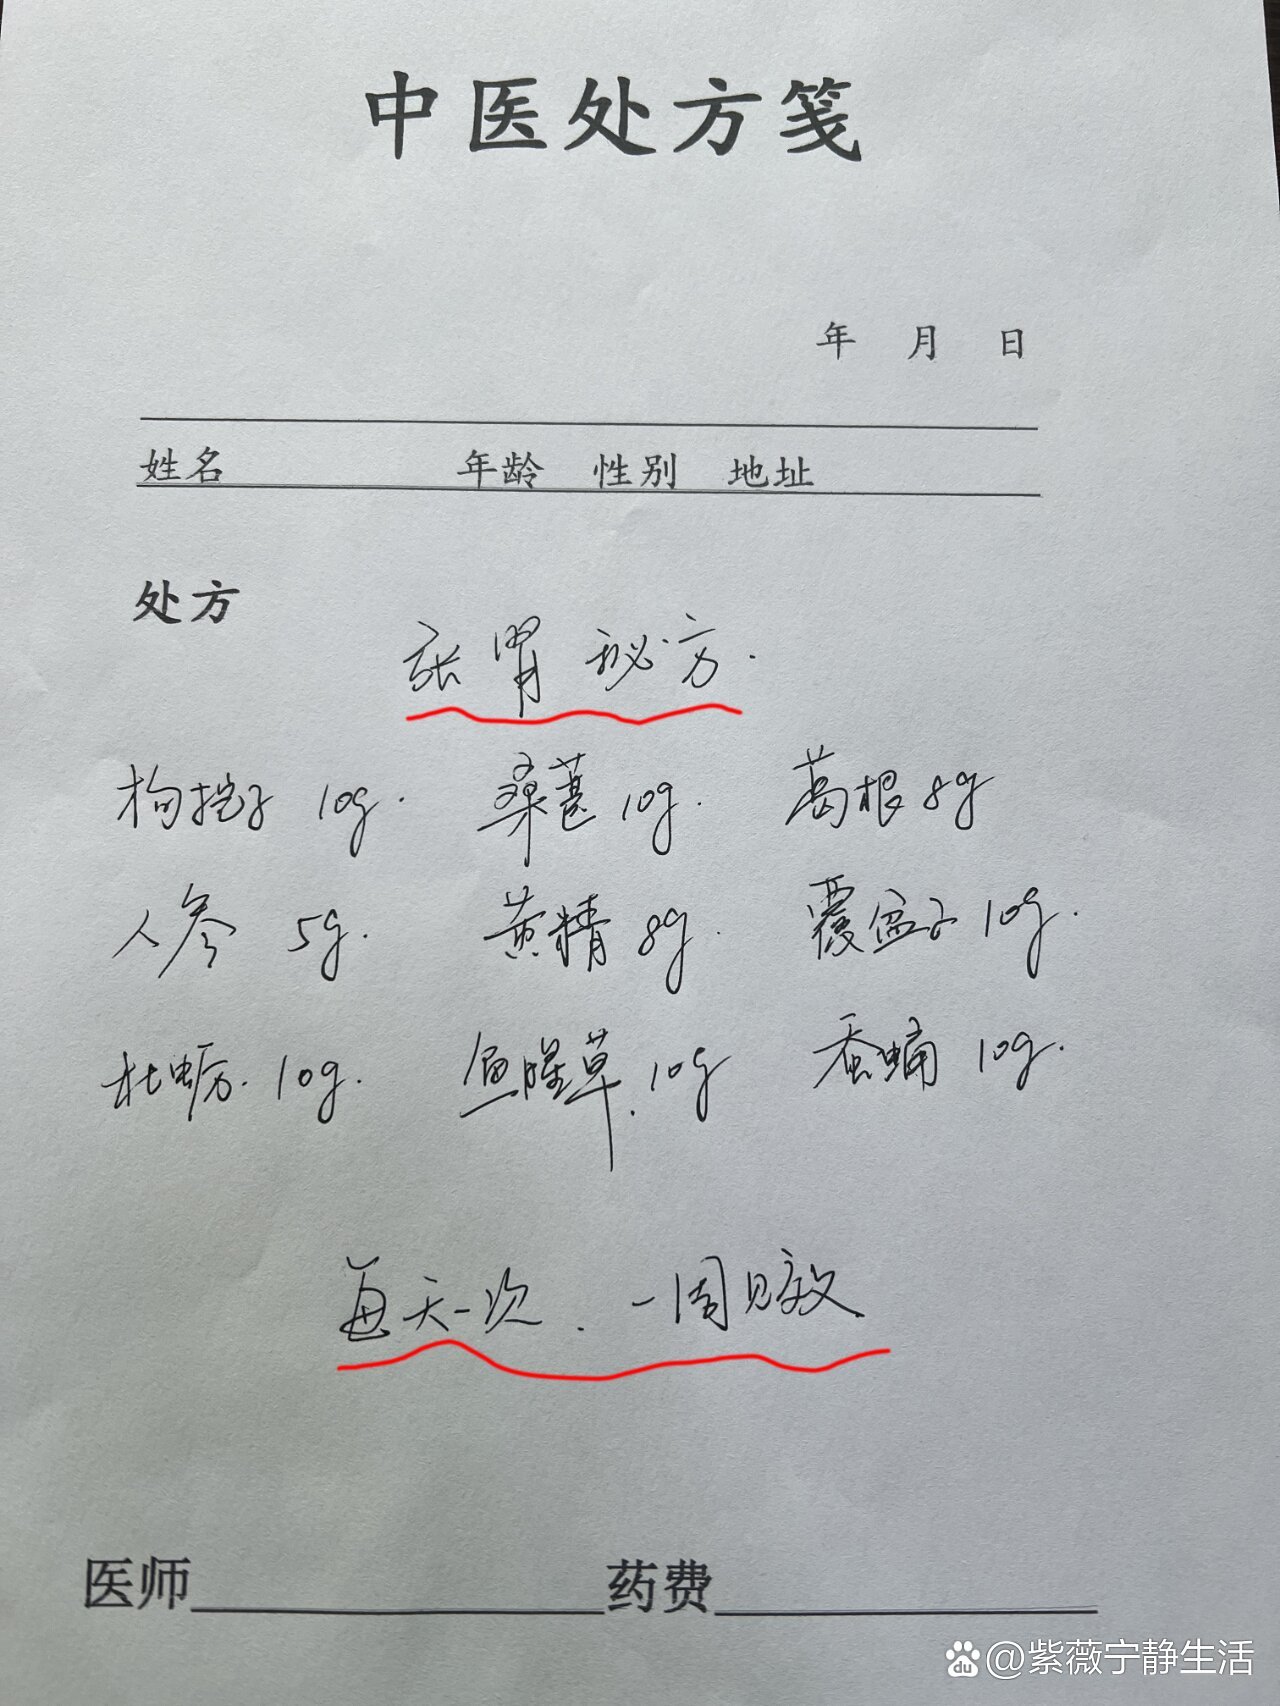 中医处方笺
年 月 日
姓名 年龄 性别 地址
处方
张胃 秘方.
枸杞子 10g. 桑葚 10g. 葛根 8g
人参 5g. 黄精 8g. 覆盆子 10g.
牡蛎. 10g. 鱼腥草. 10g 蚕蛹 10g.
每天一次. 一周见效.
医师 药费
du @紫薇宁静生活